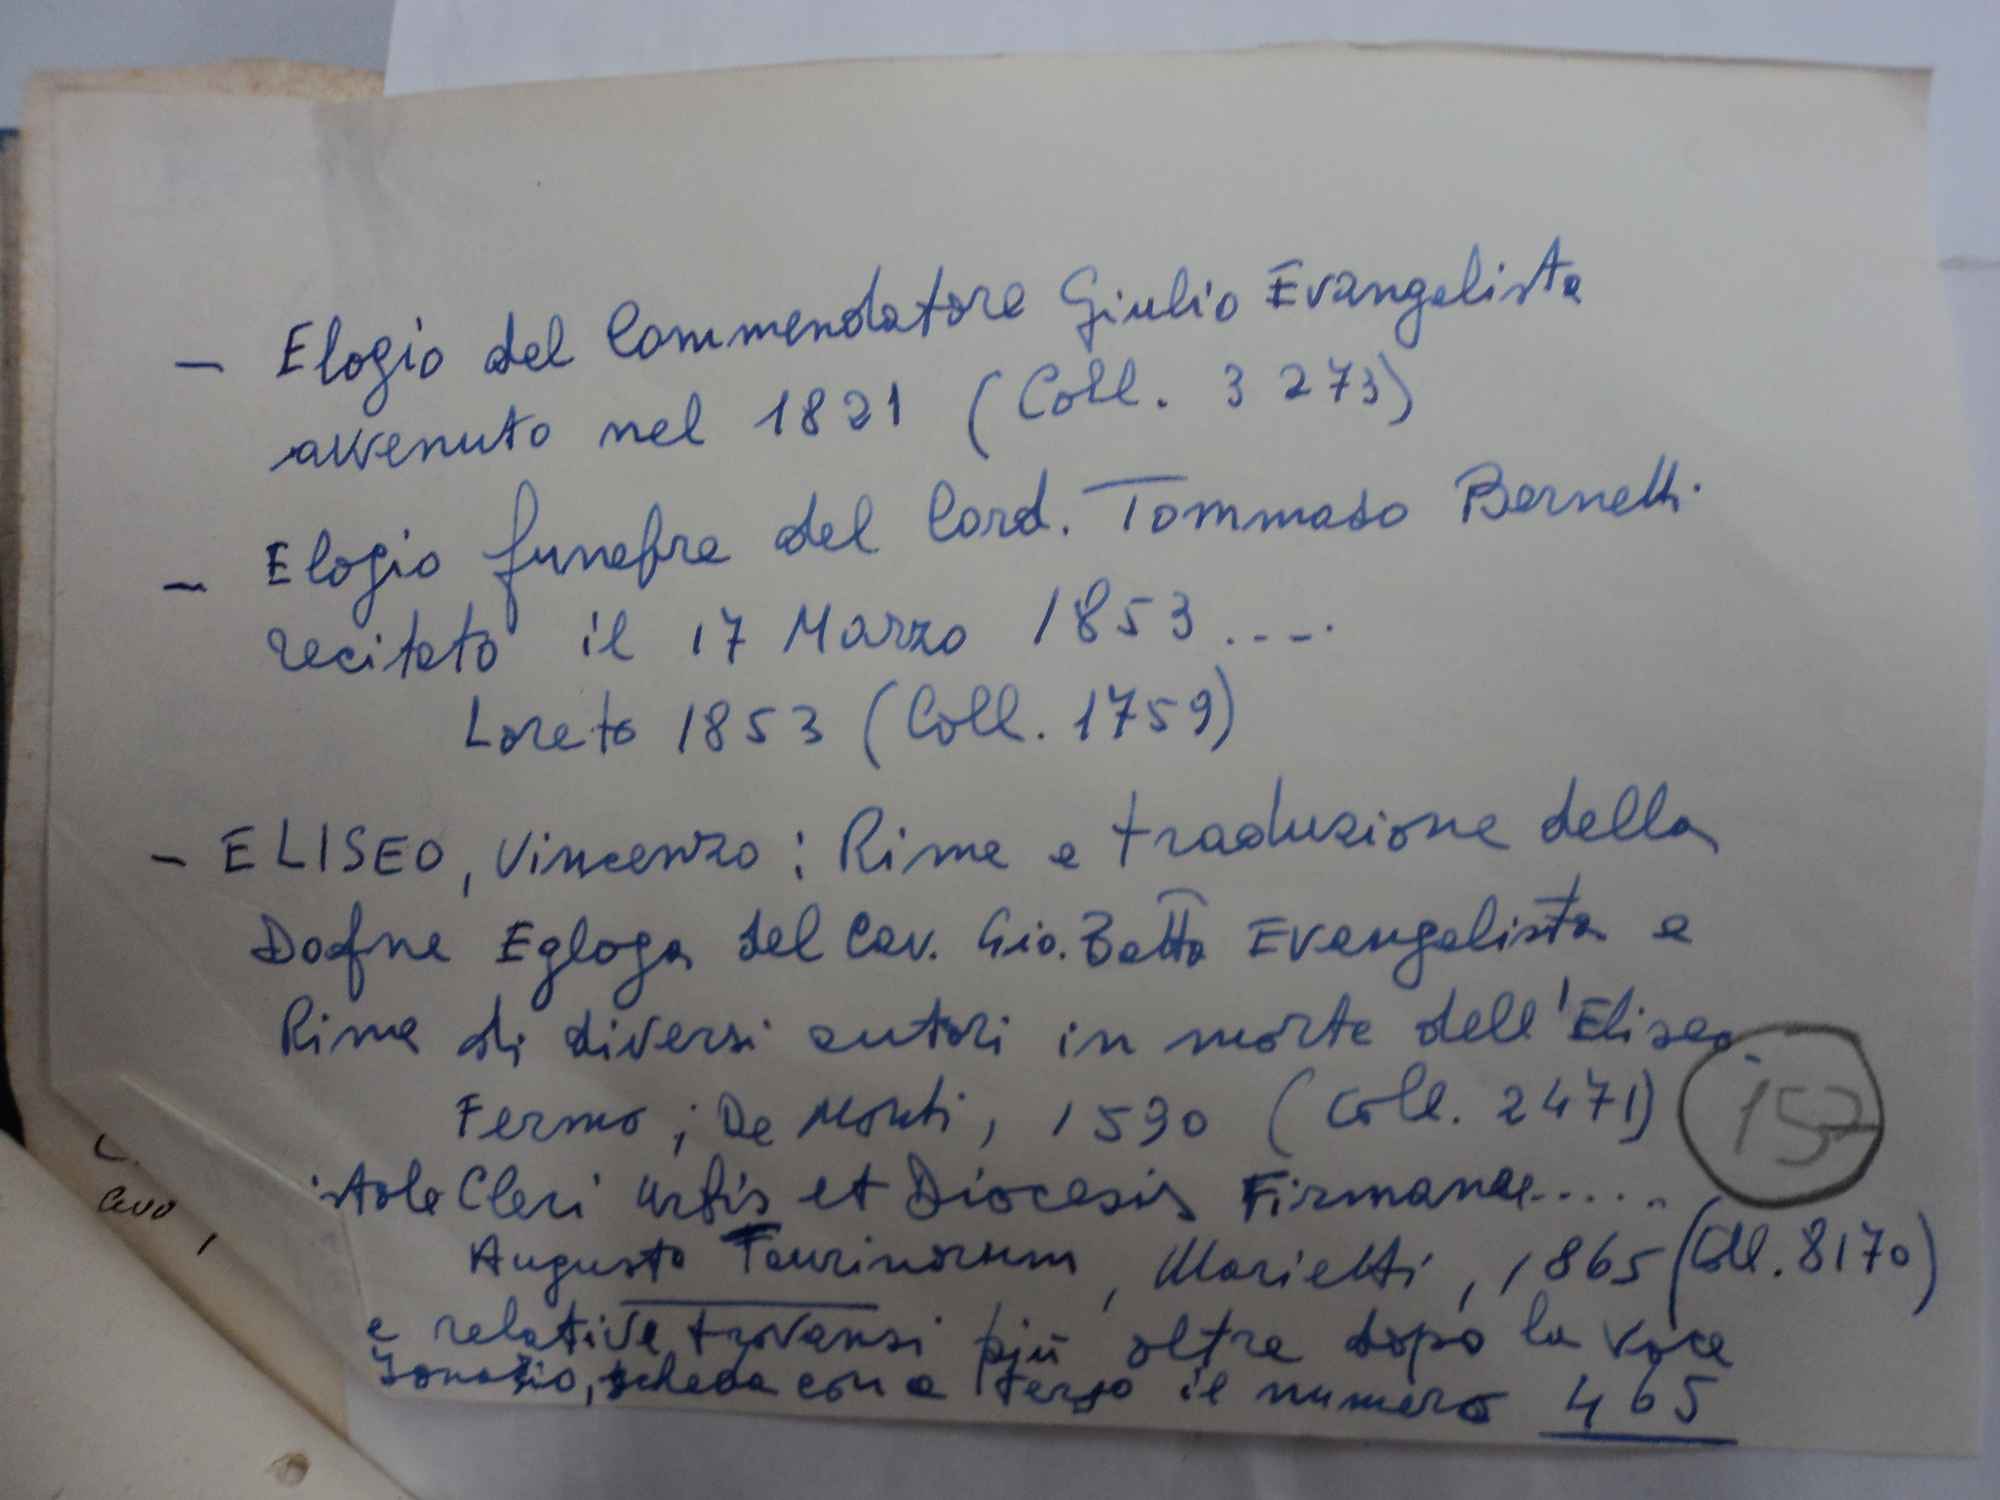 — Elogio del Commendatore Giulio Evangelista
avvenuto nel 1821 (Coll. 3273)
— Elogio funebre del Card. Tommaso Bernetti
recitato il 17 Marzo 1853 ....
Loreto 1853 (Coll. 1759)
— ELISEO, Vincenzo: Rime e traduzione della
Dafne Egloga del Cav. Gio. Batta Evangelista e
Rime di diversi autori in morte dell'Eliseo.
Fermo; De Monti, 1590 (Coll. 2471)
152
istole Cleri Urbis et Diocesis Firmanae.....
Augusto Taurinorum, Marietti, 1865 (Coll. 8170)
e relative trovansi più oltre dopo la voce
scheda con a tergo il numero 465